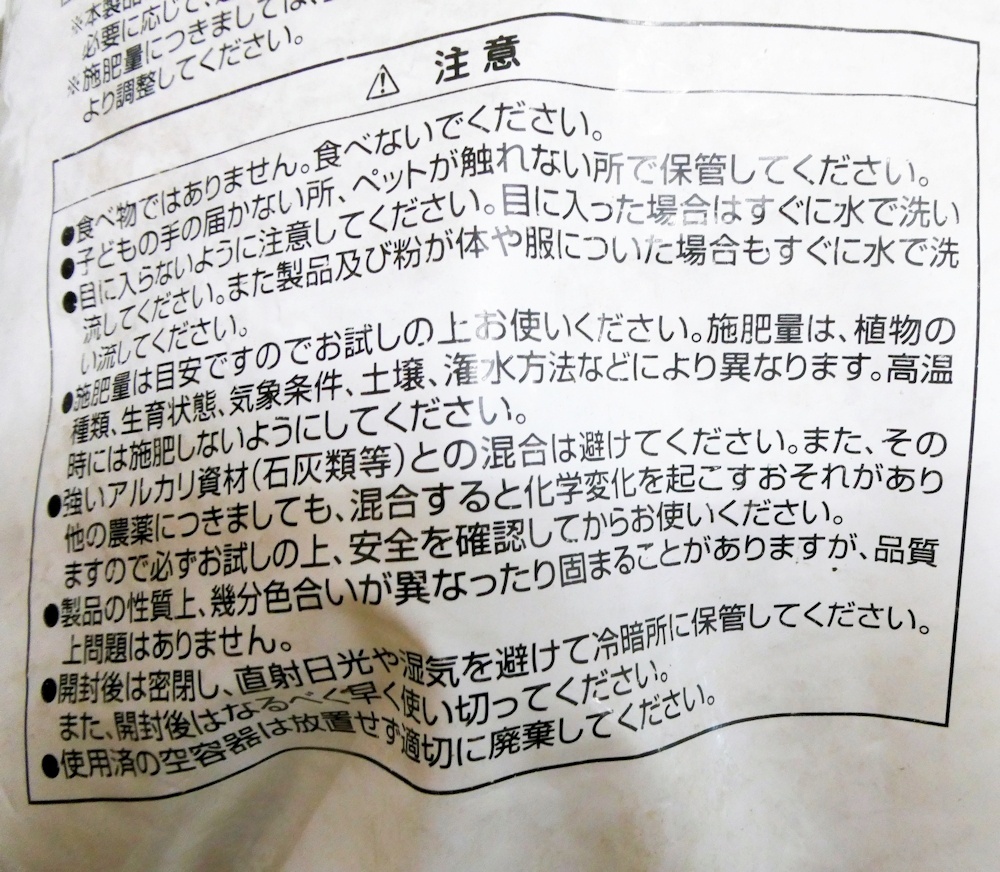 ※本製品
必要に応じて、
※施肥量につきましては、
より調整してください。
注意
●食べ物ではありません。食べないでください。
●子どもの手の届かない所、ペットが触れない所で保管してください。
●目に入らないように注意してください。目に入った場合はすぐに水で洗い
流してください。また製品及び粉が体や服についた場合もすぐに水で洗
い流してください。
●施肥量は目安ですのでお試しの上お使いください。施肥量は、植物の
種類、生育状態、気象条件、土壌、潅水方法などにより異なります。高温
時には施肥しないようにしてください。
●強いアルカリ資材(石灰類等)との混合は避けてください。また、その
他の農薬につきましても、混合すると化学変化を起こすおそれがあり
ますので必ずお試しの上、安全を確認してからお使いください。
●製品の性質上、幾分色合いが異なったり固まることがありますが、品質
上問題はありません。
●開封後は密閉し、直射日光や湿気を避けて冷暗所に保管してください。
また、開封後はなるべく早く使い切ってください。
●使用済の空容器は放置せず適切に廃棄してください。